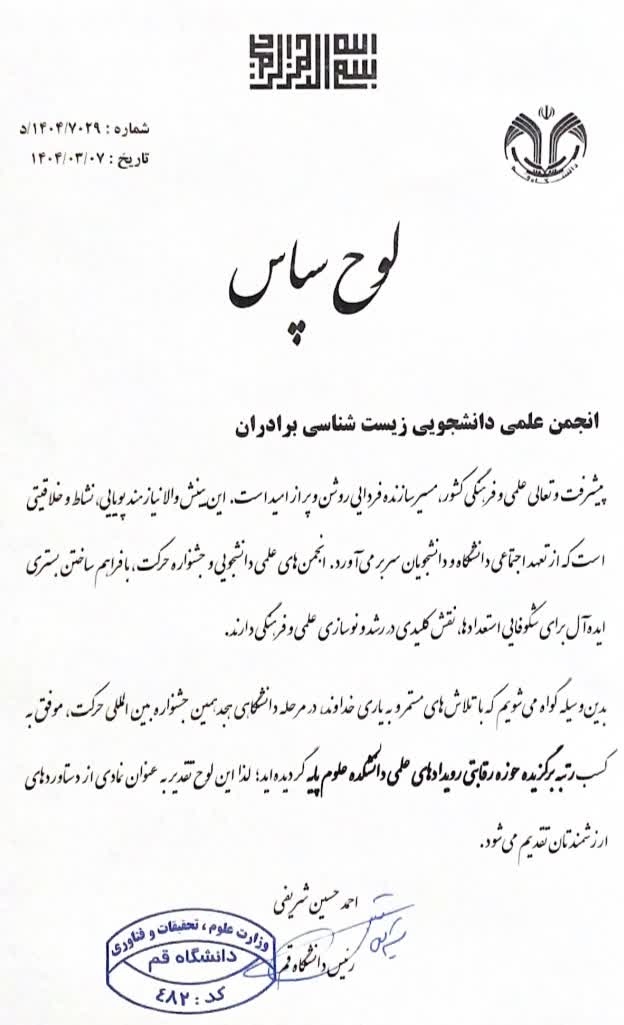 بسم الله الرحمن الرحیم
شماره : ۱۴۰۴/۷۰۲۹/د
تاریخ : ۱۴۰۴/۰۳/۰۷
دانشگاه قم
لوح سپاس
انجمن علمی دانشجویی زیست شناسی برادران
پیشرفت و تعالی علمی و فرهنگی کشور، مسیر سازنده فردایی روشن و پر از امید است. این بینش والا نیازمند پویایی، نشاط و خلاقیتی
است که از تعهد اجتماعی دانشگاه و دانشجویان سربر می‌آورد. انجمن‌های علمی دانشجویی و جشنواره حرکت، با فراهم ساختن بستری
ایده‌آل برای شکوفایی استعدادها، نقش کلیدی در رشد و نوسازی علمی و فرهنگی دارند.
بدین وسیله گواه می‌شویم که با تلاش‌های مستمر و به یاری خداوند، در مرحله دانشگاهی هجدهمین جشنواره بین المللی حرکت، موفق به
کسب رتبه برگزیده حوزه رقابتی رویدادهای علمی دانشکده علوم پایه گردیده‌اید؛ لذا این لوح تقدیر به عنوان نمادی از دستاوردهای
ارزشمندتان تقدیم می‌شود.
احمد حسین شریفی
رئیس دانشگاه قم
وزارت علوم ، تحقیقات و فناوری
دانشگاه قم
کد : ٤٨٢